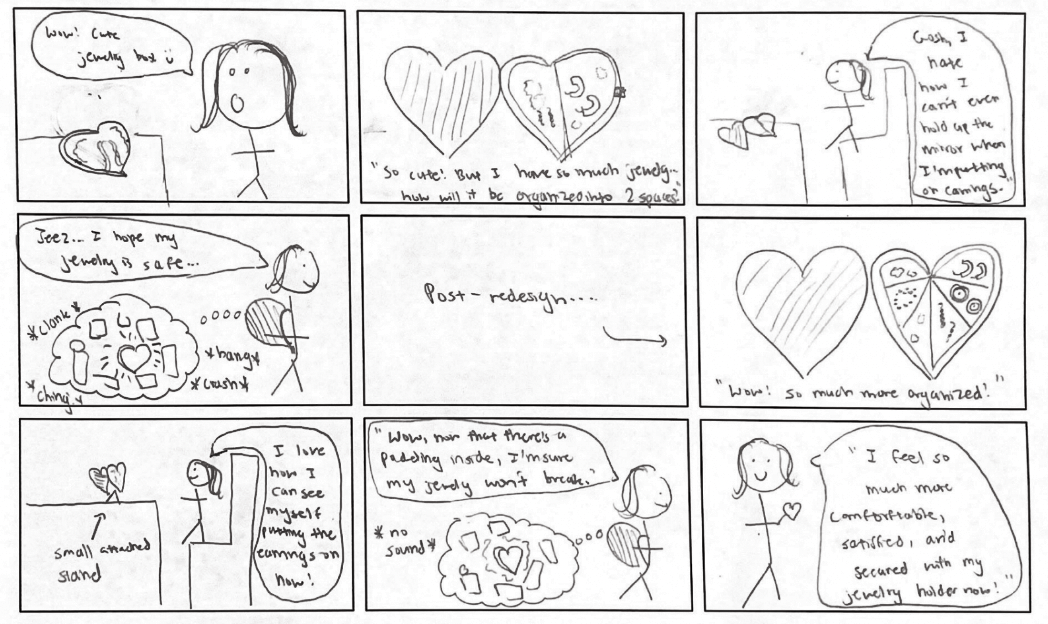 Wow! Cute
jewelry box
"So cute! But I have so much jewelry...
how will it be organized into 2 spaces?"
Gosh, I
hate
how I
can't even
hold up the
mirror when
I'm putting
on earrings."
Jeez... I hope my
jewelry is safe...
*clank*
*bang*
*crash*
*ching*
Post-redesign....
"Wow! So much more organized!"
I love
how I
can see
myself
putting the
earrings on
now!
small attached
stand
"Wow, now that there's a
padding inside, I'm sure
my jewelry won't break."
*no
sound*
"I feel so
much more
comfortable,
satisfied, and
secured with my
jewelry holder now!"